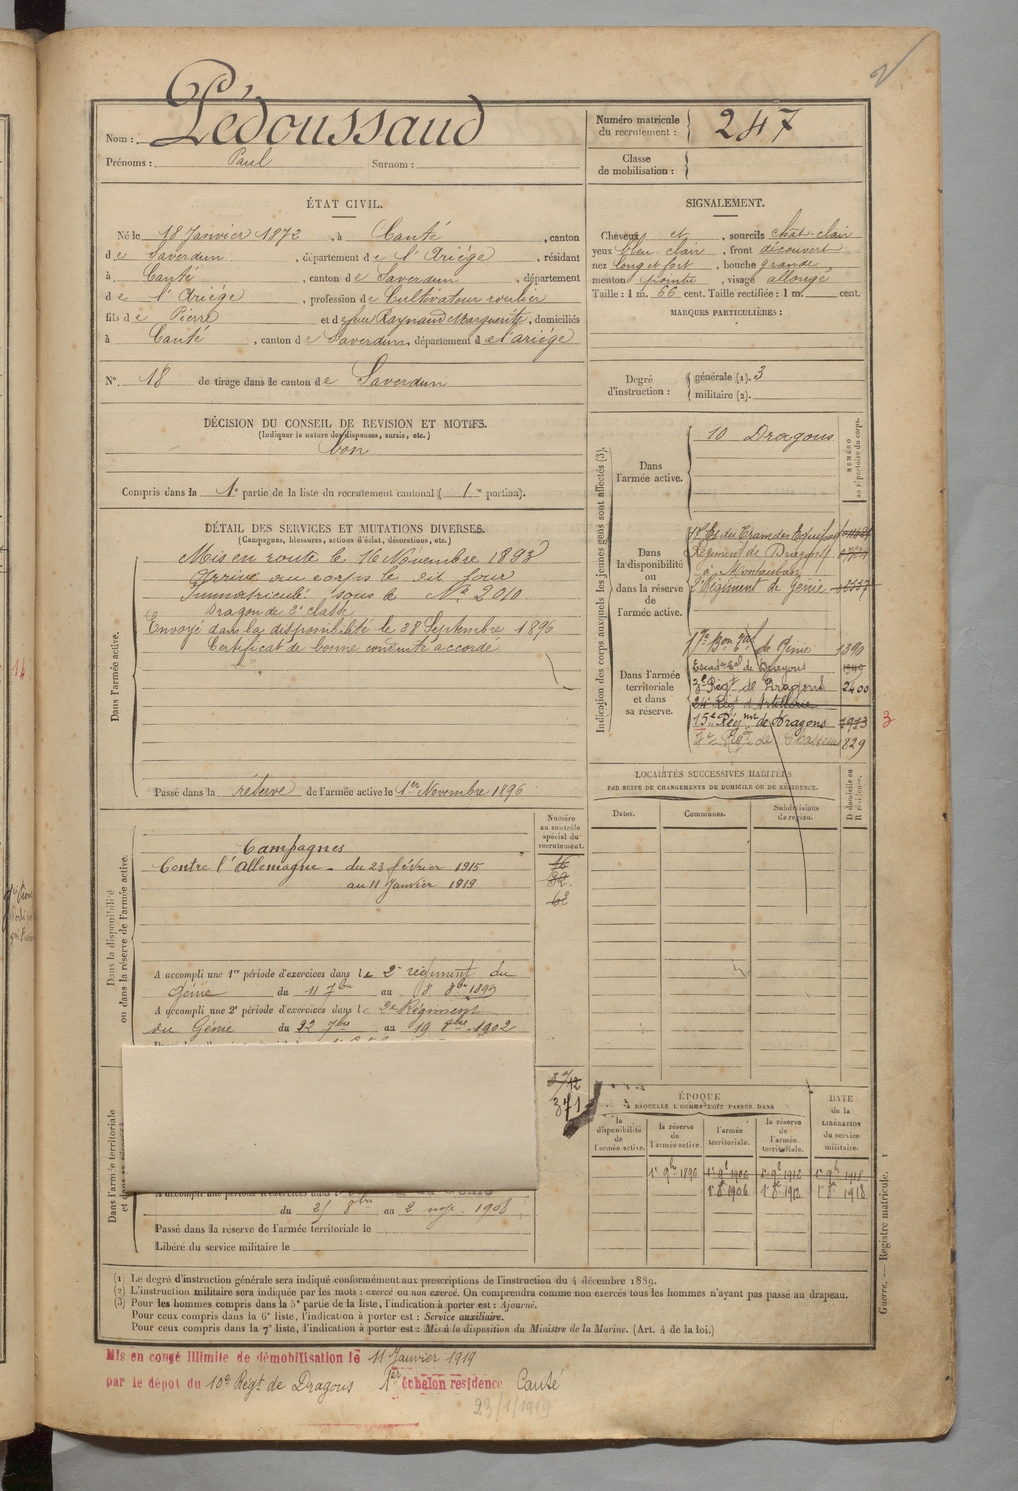 Nom : Pédoussaud
Prénoms : Paul Surnom :
Numéro matricule du recrutement : 247
Classe de mobilisation :
ÉTAT CIVIL.
Né le 18 Janvier 1872, à Canté, canton
de Saverdun, département de l'Ariége, résidant
à Canté, canton de Saverdun, département
de l'Ariége, profession de Cultivateur roulier
fils de Pierre et de feue Raynaud Marguerite, domiciliés
à Canté, canton de Saverdun, département de l'ariége
No. 18 de tirage dans le canton de Saverdun
SIGNALEMENT.
Cheveux et, sourcils chât-clair
yeux bleu clair, front découvert
nez long et fort, bouche grande
menton pointu, visage allongé
Taille : 1 m. 66 cent. Taille rectifiée : 1 m. cent.
MARQUES PARTICULIÈRES :
Degré d'instruction : générale (1). 3
militaire (2).
DÉCISION DU CONSEIL DE REVISION ET MOTIFS.
(Indiquer la nature des dispenses, sursis, etc.)
bon
Compris dans la 1e partie de la liste du recrutement cantonal (1re portion).
DÉTAIL DES SERVICES ET MUTATIONS DIVERSES.
(Campagnes, blessures, actions d'éclat, décorations, etc.)
Dans l'armée active.
Mis en route le 16 Novembre 1893
Arrivé au corps le dit jour
Immatriculé sous le No 2010
Dragon de 2e classe
Envoyé dans la disponibilité le 28 Septembre 1896
Certificat de bonne conduite accordé
Passé dans la réserve de l'armée active le 1er Novembre 1896
Indication des corps auxquels les jeunes gens sont affectés (3).
NUMÉRO au répertoire du corps.
Dans l'armée active.
10 Dragons
Dans la disponibilité ou dans la réserve de l'armée active.
Régiment de Dragons
à Montauban
2e Régiment de Génie
Dans l'armée territoriale et dans sa réserve.
de Génie 1390
de Dragons
3e Régt de Dragons 2400
24e Régt d'Artillerie
15e Régnt de Dragons 1913
3
829
LOCALITÉS SUCCESSIVES HABITÉES
PAR SUITE DE CHANGEMENTS DE DOMICILE OU DE RÉSIDENCE.
Dates. Communes. Subdivisions de région. D domicile ou R résidence.
Dans la disponibilité ou dans la réserve de l'armée active.
Numéro au contrôle spécial du recrutement.
Campagnes
Contre l'Allemagne - du 23 février 1915
au 11 Janvier 1919
16
82
62
A accompli une 1re période d'exercices dans le 2e régiment du
Génie du 11 7bre au 8 8bre 1899
A accompli une 2e période d'exercices dans le 2e Régiment
du Génie du 22 7bre au 19 8bre 1902
Dans l'armée territoriale
371
du 25 8bre au 2 nov. 1908
Passé dans la réserve de l'armée territoriale le
Libéré du service militaire le
ÉPOQUE
A LAQUELLE L'HOMME DOIT PASSER DANS
la disponibilité de l'armée active.
la réserve de l'armée active.
l'armée territoriale.
la réserve de l'armée territoriale.
DATE de la LIBÉRATION du service militaire.
1er 9bre 1896 1er 9bre 1906 1er 9bre 1912 1er 9bre 1918
1er 8bre 1906 1er 8bre 1912 1er 8bre 1918
(1) Le degré d'instruction générale sera indiqué conformément aux prescriptions de l'instruction du 4 décembre 1889.
(2) L'instruction militaire sera indiquée par les mots : exercé ou non exercé. On comprendra comme non exercés tous les hommes n'ayant pas passé au drapeau.
(3) Pour les hommes compris dans la 5e partie de la liste, l'indication à porter est : Ajourné.
Pour ceux compris dans la 6e liste, l'indication à porter est : Service auxiliaire.
Pour ceux compris dans la 7e liste, l'indication à porter est : Mis à la disposition du Ministre de la Marine. (Art. 4 de la loi.)
Guerre. — Registre matricule. 1
Mis en congé illimité de démobilisation le 11 Janvier 1919
par le dépot du 10e Régt de Dragons 1er échelon résidence Canté
23/1/1919